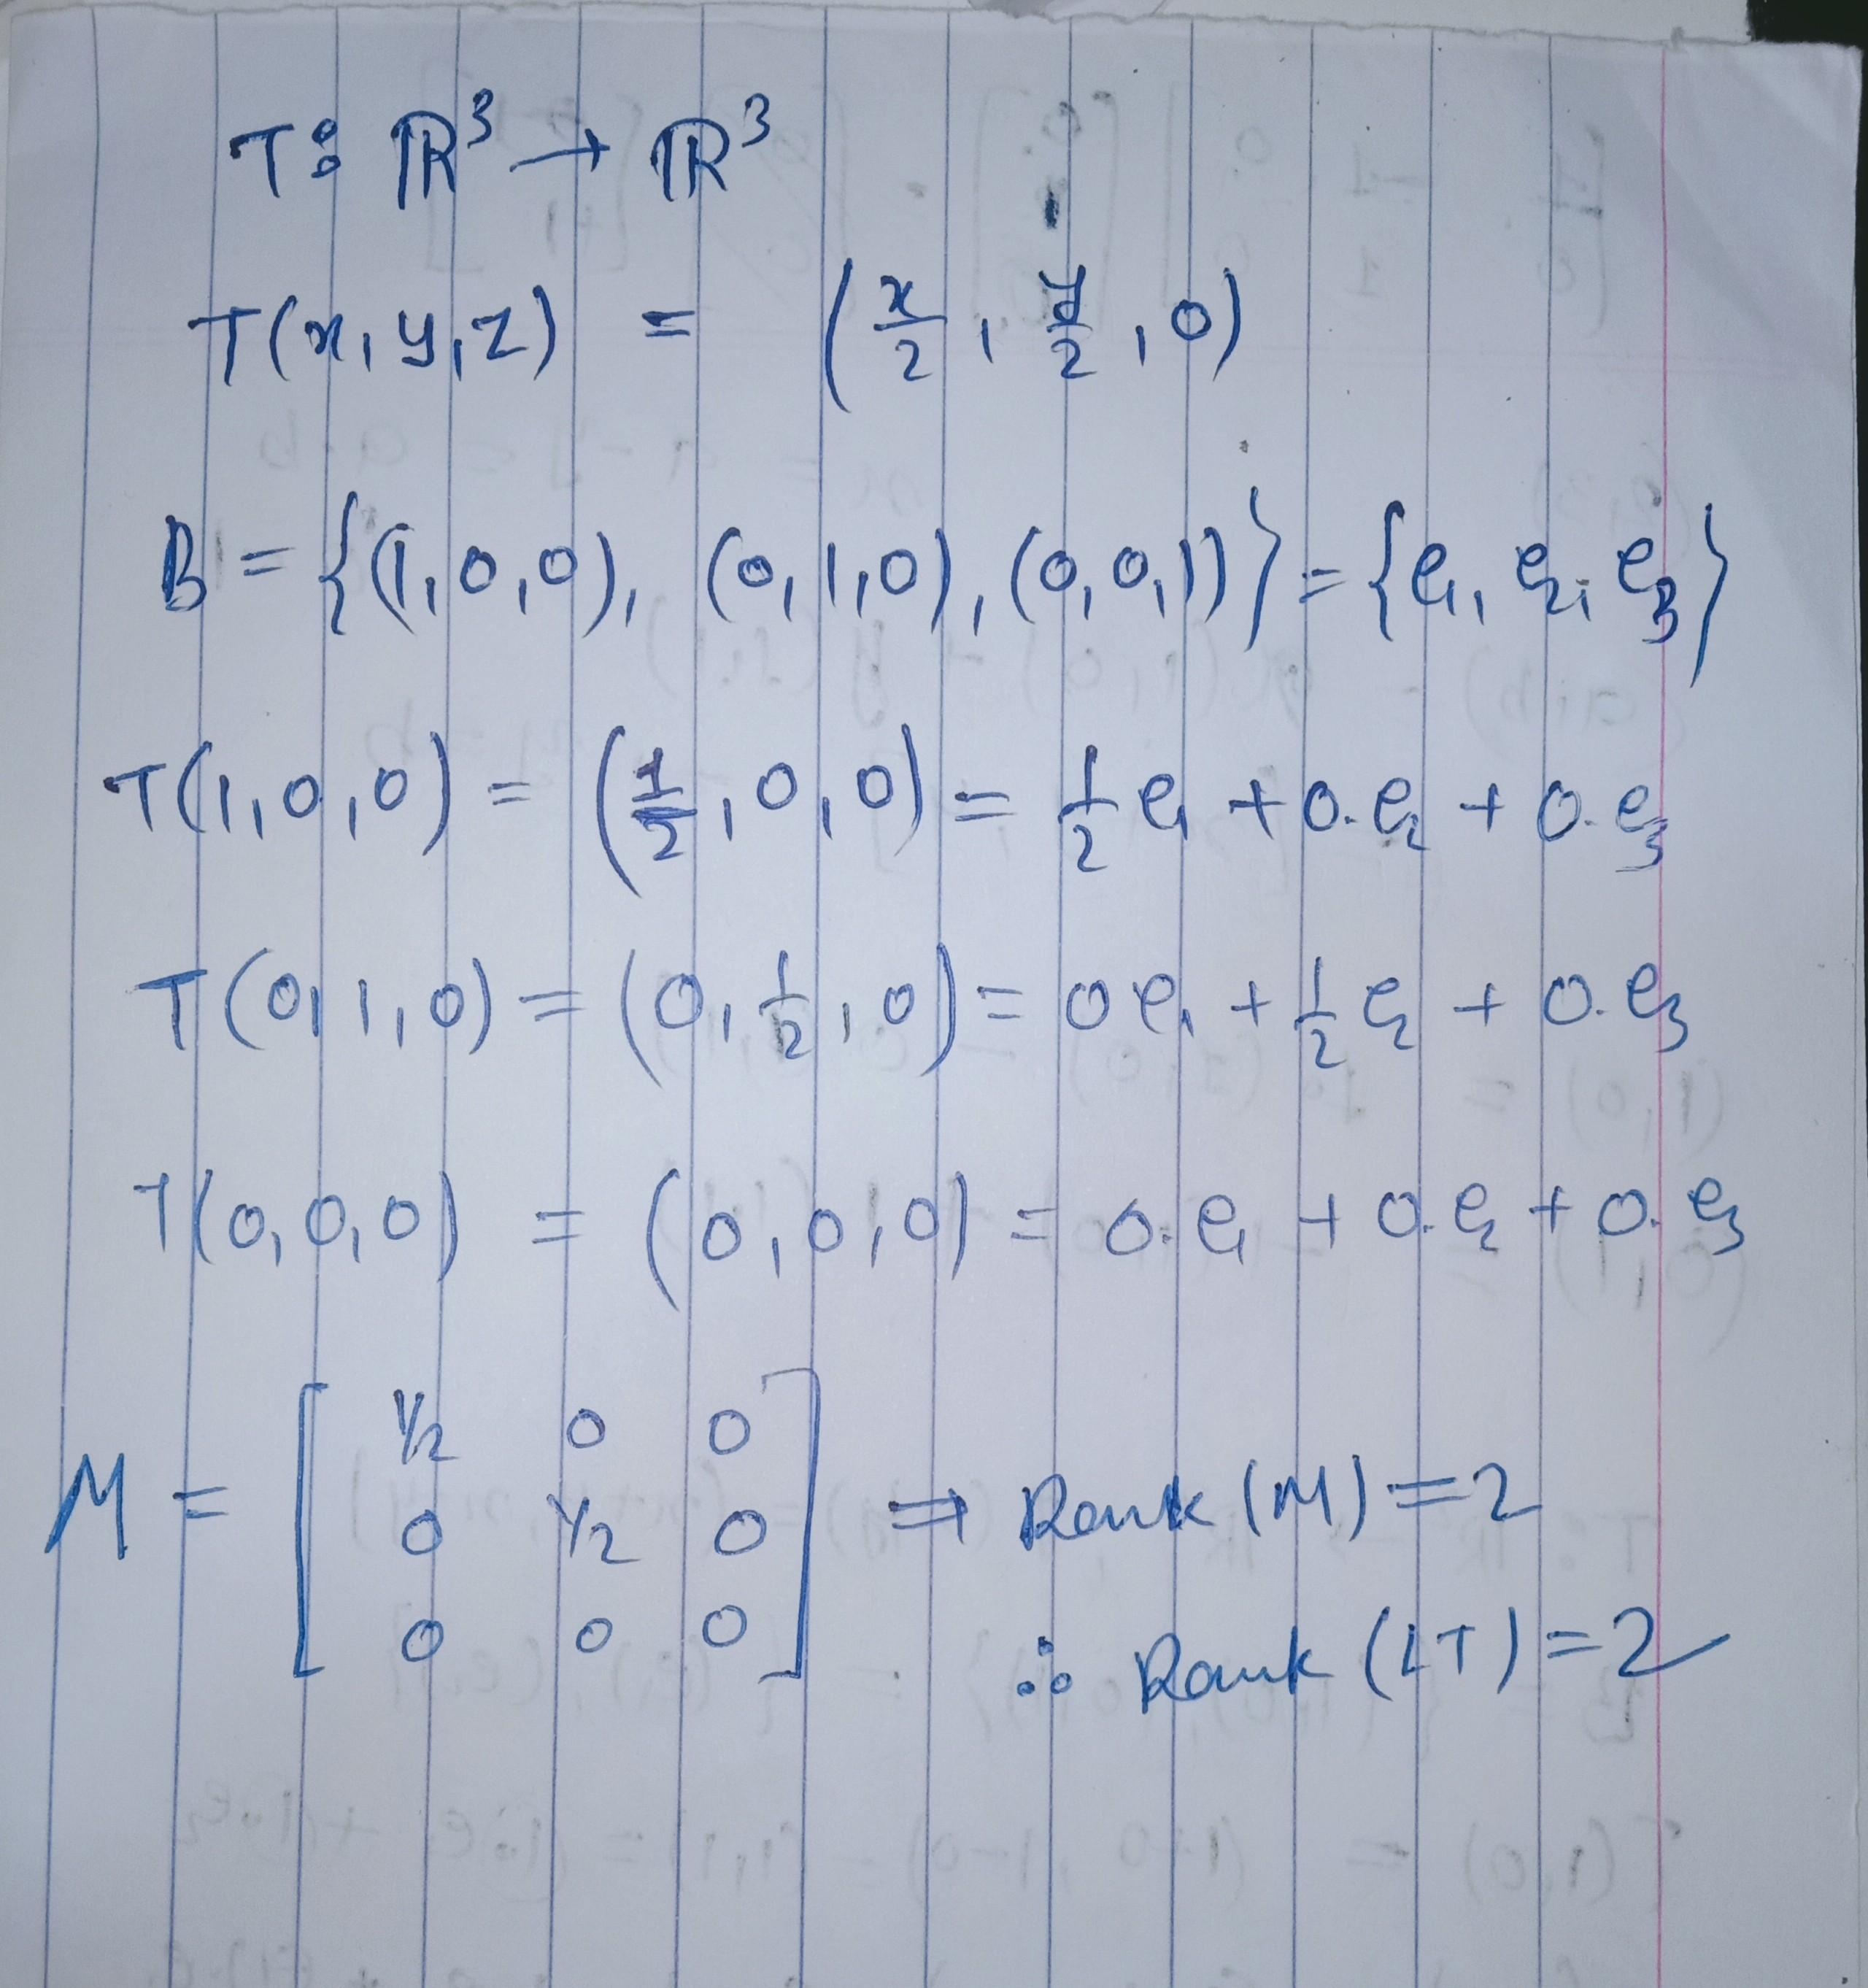 T: ℝ³ → ℝ³
T(x, y, z) = (x/2, y/2, 0)
B = {(1,0,0), (0,1,0), (0,0,1)} = {e₁, e₂, e₃}
T(1,0,0) = (1/2, 0, 0) = 1/2 e₁ + 0.e₂ + 0.e₃
T(0,1,0) = (0, 1/2, 0) = 0e₁ + 1/2 e₂ + 0.e₃
T(0,0,0) = (0,0,0) = 0.e₁ + 0.e₂ + 0.e₃
M = [1/2 0 0
0 1/2 0
0 0 0] ⇒ Rank (M) = 2
∴ Rank (LT) = 2